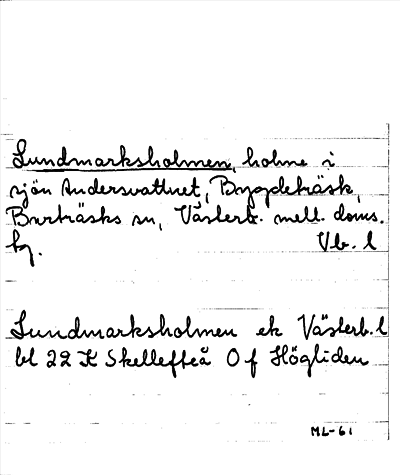 Lundmarksholmen, holme i
sjön Andersvattnet, Bygdeträsk,
Burträsks sn, Västerb. mell. doms.
hg. Vb. l
Lundmarksholmen ek Västerb. l
bl 22 K Skellefteå O f Högliden
ML-61